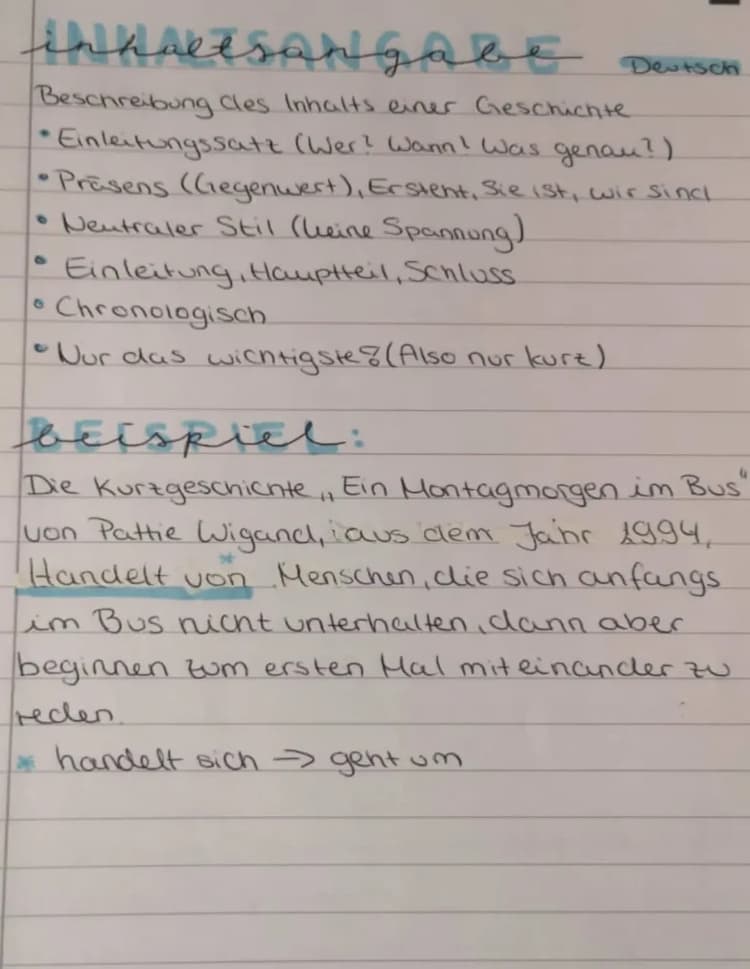 inhaltsangabe
INHALTSANGABE
Deutsch
Beschreibung des Inhalts einer Geschichte
• Einleitungssatz (Wer? Wann? Was genau?)
• Präsens (Gegenwert), Ersteht, Sie ist, wir sind
• Neutraler Stil (keine Spannung)
• Einleitung, Hauptteil, Schluss
• Chronologisch
• Nur das wichtigste! (Also nur kurz)
beispiel:
BEISPIEL:
Die Kurzgeschichte „Ein Montagmorgen im Bus"
von Pattie Wigand, aus dem Jahr 1994,
Handelt von* Menschen, die sich anfangs
im Bus nicht unterhalten, dann aber
beginnen zum ersten Mal miteinander zu
reden.
* handelt sich → geht um